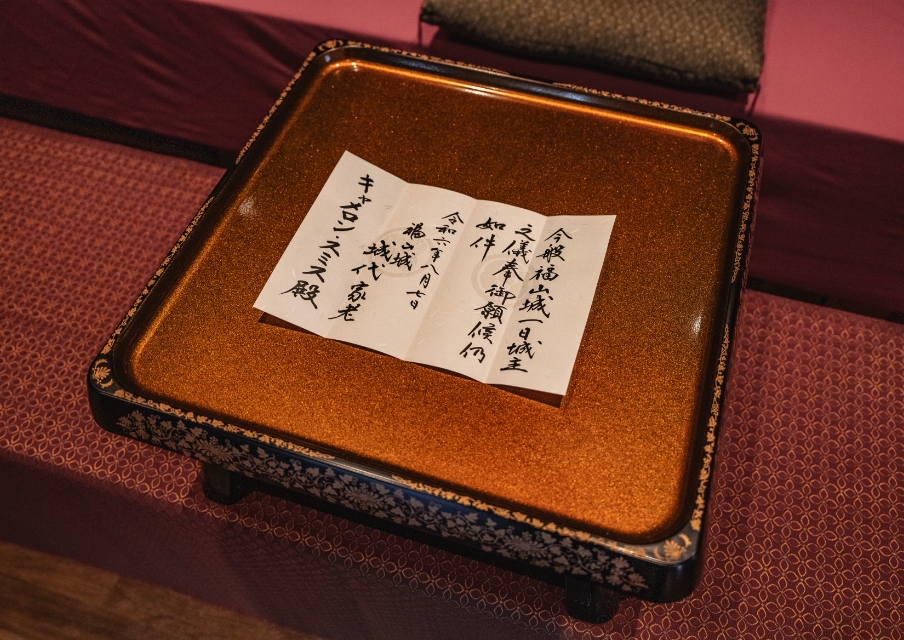 今般福山城一日城主
之儀奉御願候仍
如件
令和六年八月七日
福山城
城代家老
キャメロン・スミス殿